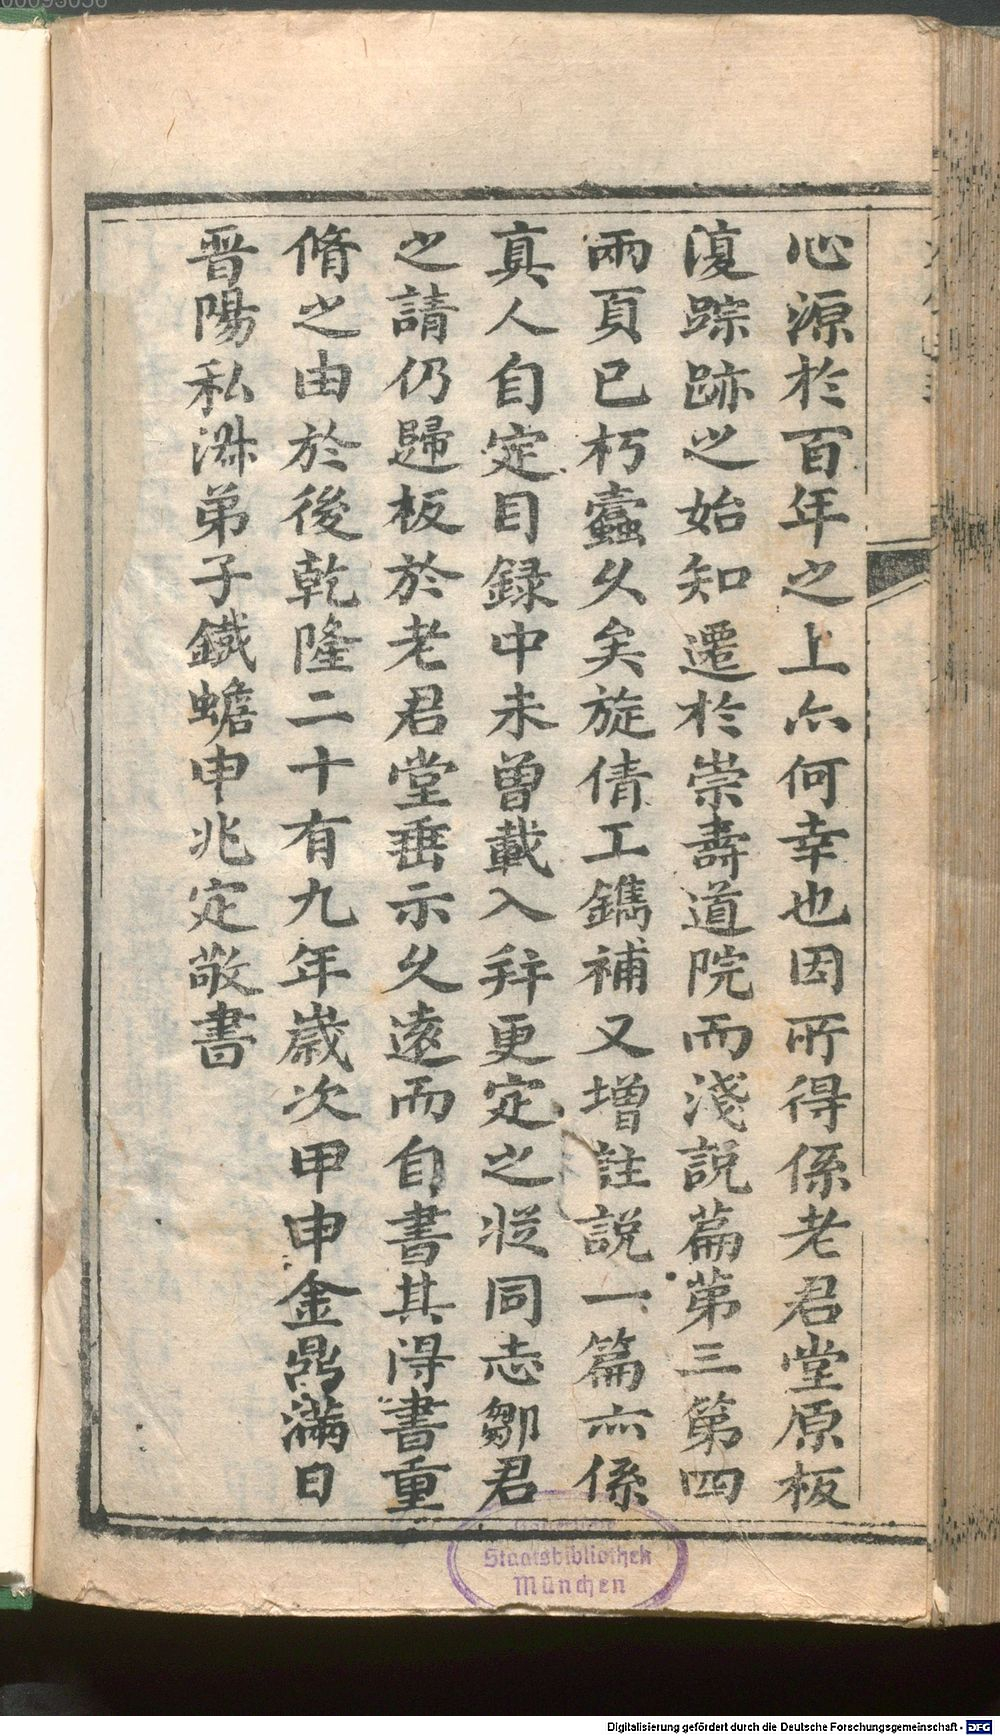 心源於百年之上亦何幸也因所得係老君堂原板
復踪跡之始知遷於崇壽道院而淺説篇第三第四
兩頁已朽蠹久矣旋倩工鐫補又增註説一篇亦係
真人自定目録中未曽載入弁更定之從同志鄒君
之請仍歸板於老君堂垂示久遠而自書其得書重
脩之由於後乾隆二十有九年歲次甲申金鼎滿日
晋陽私淑弟子鐵蟾申兆定敬書
Staatsbibliothek
München
Digitalisierung gefördert durch die Deutsche Forschungsgemeinschaft - DFG